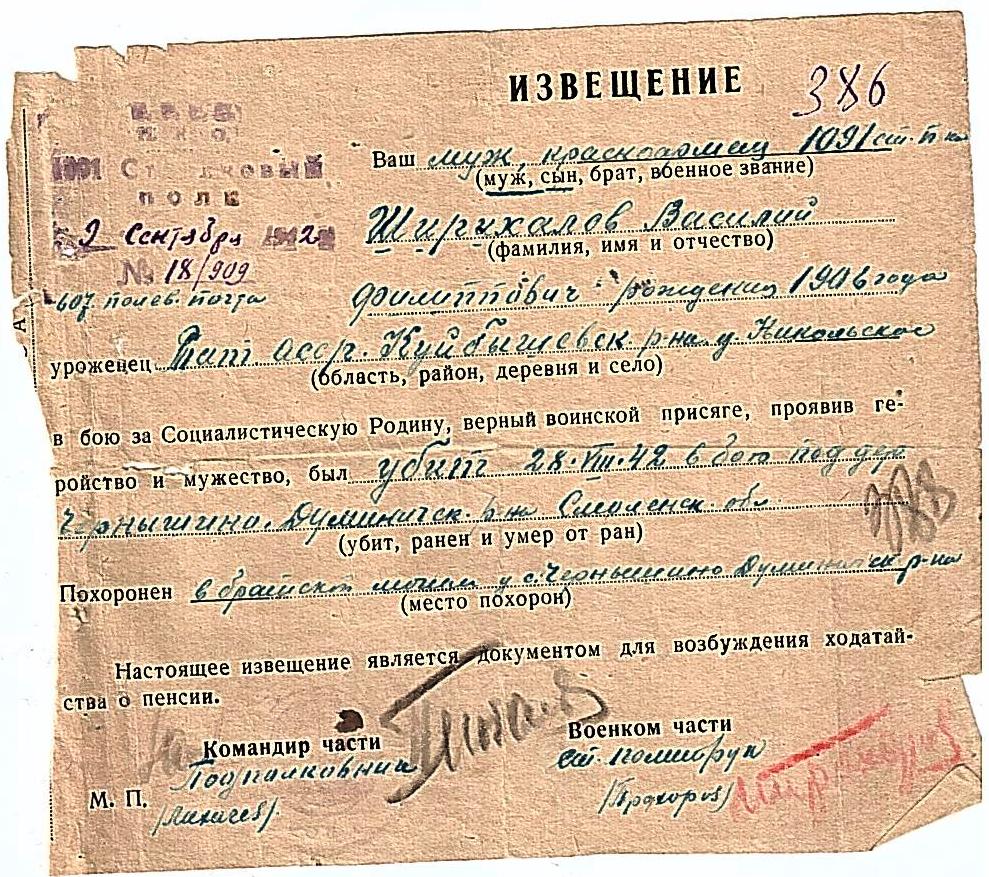 ИЗВЕЩЕНИЕ
386
Н К О
1091 Стрелковый
ПОЛК
2 Сентября 1942
№ 18/909
607 полев. почта
Ваш муж, красноармеец 1091 ст. п-ка
(муж, сын, брат, военное звание)
Ширыхалов Василий
(фамилия, имя и отчество)
Филиппович рождения 1906 года
уроженец Тат асср. Куйбышевск р-на д. Никольское
(область, район, деревня и село)
в бою за Социалистическую Родину, верный воинской присяге, проявив ге-
ройство и мужество, был убит 28.VIII.42 в бою под дер
Чернышино. Думиничск. р-на Смоленск. обл.
(убит, ранен и умер от ран)
Похоронен в братской могил у с. Чернышино Думиничск р-на
(место похорон)
Настоящее извещение является документом для возбуждения ходатай-
ства о пенсии.
Командир части
Военком части
Подполковник
ст. политрук
М. П.
(Лихачев).
(Прохоров)